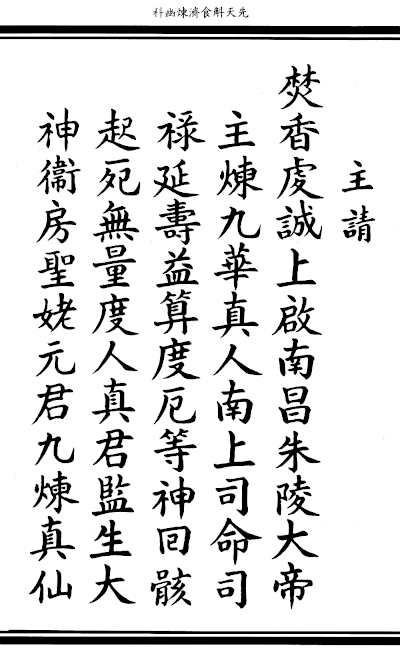 科幽煉濟食斛天先
主請
焚香虔誠上啟南昌朱陵大帝
主煉九華真人南上司命司
祿延壽益算度厄等神回骸
起死無量度人真君監生大
神衞房聖姥元君九煉真仙